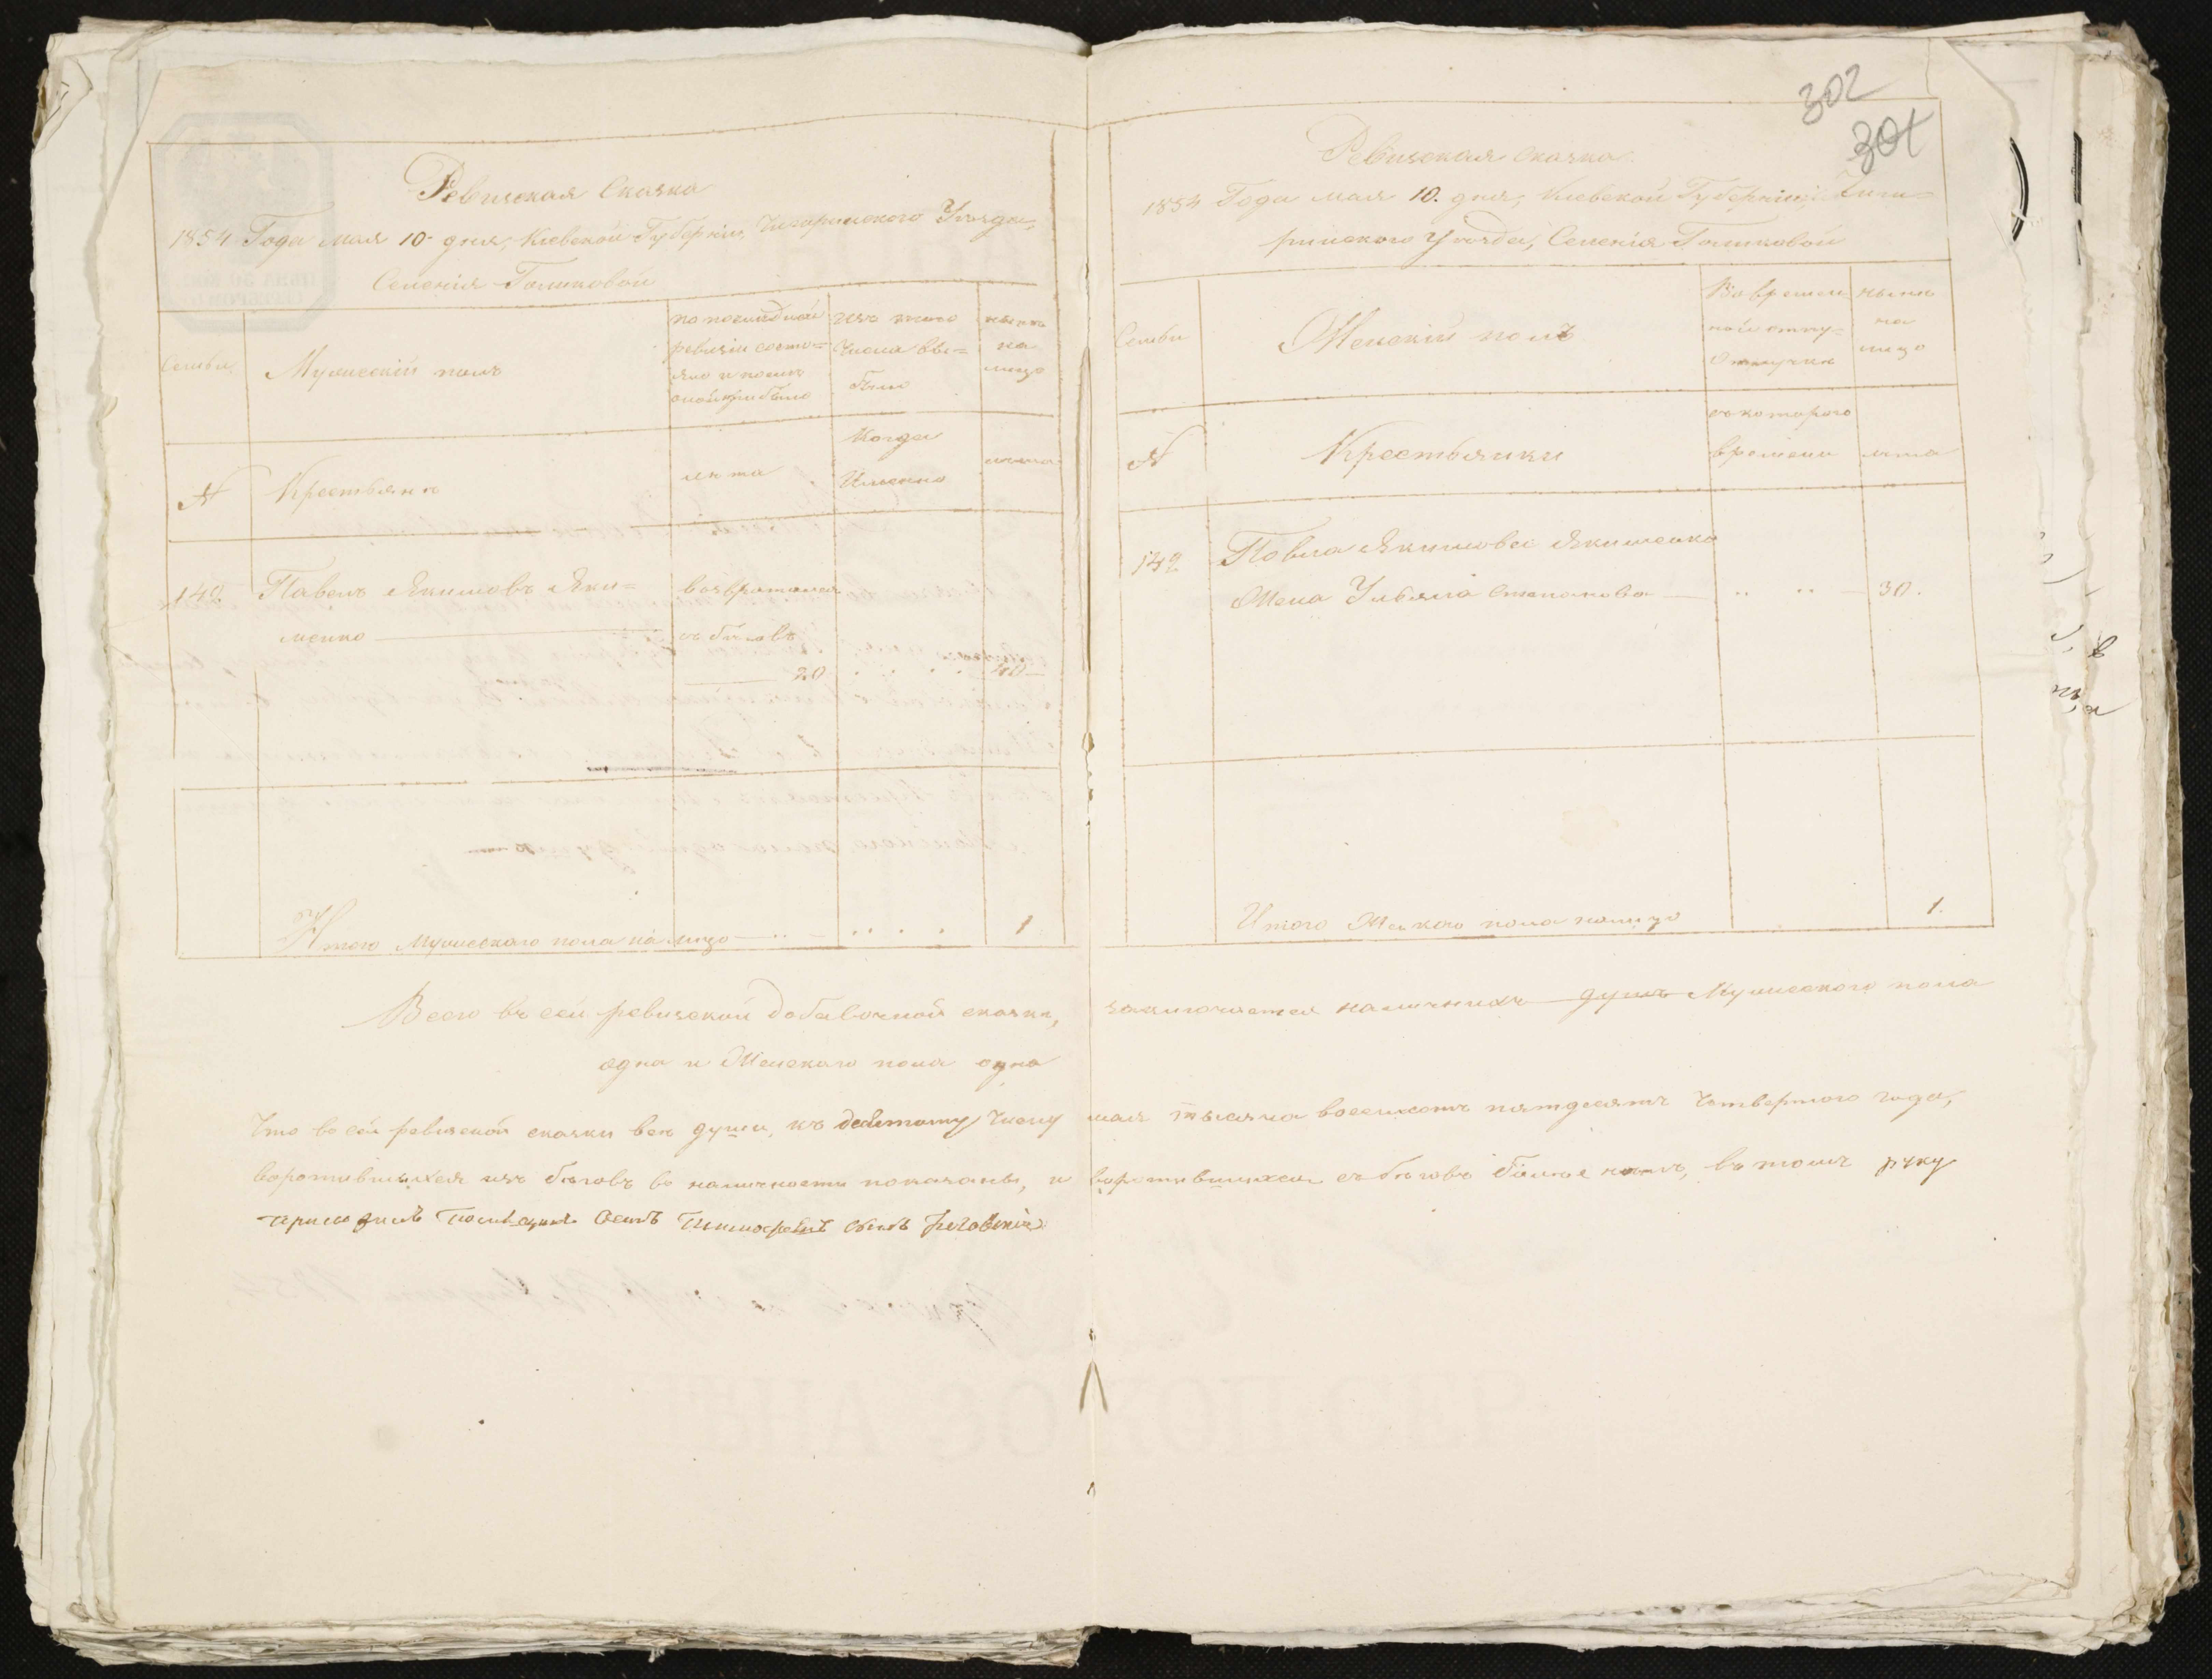 Ревизская Сказка
1854 Года мая 10 дня, Киевской Губернiи, Чигиринского Уѣзда,
Селенiя Голиковой
Семьи
Мужескiй полъ
по последней
ревизiи состо=
яло и послѣ
оной прибыло
изъ того
числа вы=
было
нынѣ
на
лицо
№
Крестьянѣ
лѣта
Когда
Именно
лѣта
142
Павелъ Якимовъ Яки=
менко
возвратился
съ бѣговъ
20
40
Итого мужескаго пола на лицо
1
302
301
Ревизская сказка
1854 Года мая 10. дня, Киевской Губернiи, Чиги=
ринского Уѣзда, Селенiя Голиковой
Семьи
Женскiй полъ
Во времен
ной отлу=
отлучки
нынѣ
на
лицо
№
Крестьянки
съ которого
времени
лѣта
142
Павла Якимова Якименка
Жена Ульяна Степанова
30.
Итого Женского пола налицо
1.
Всего въ сей ревизской добавочной сказки, заключается наличныхъ душъ Мужеского пола
одна и Женскаго пола одна
Что въ сей ревизской сказки все души, къ десятому числу мая тысяча восемсотъ пятдесятъ четвертого года,
воротившихся изъ бѣговъ во наличности показаны, и воротившихся съ бѣговъ более нѣтъ, въ томъ руку
приложилъ